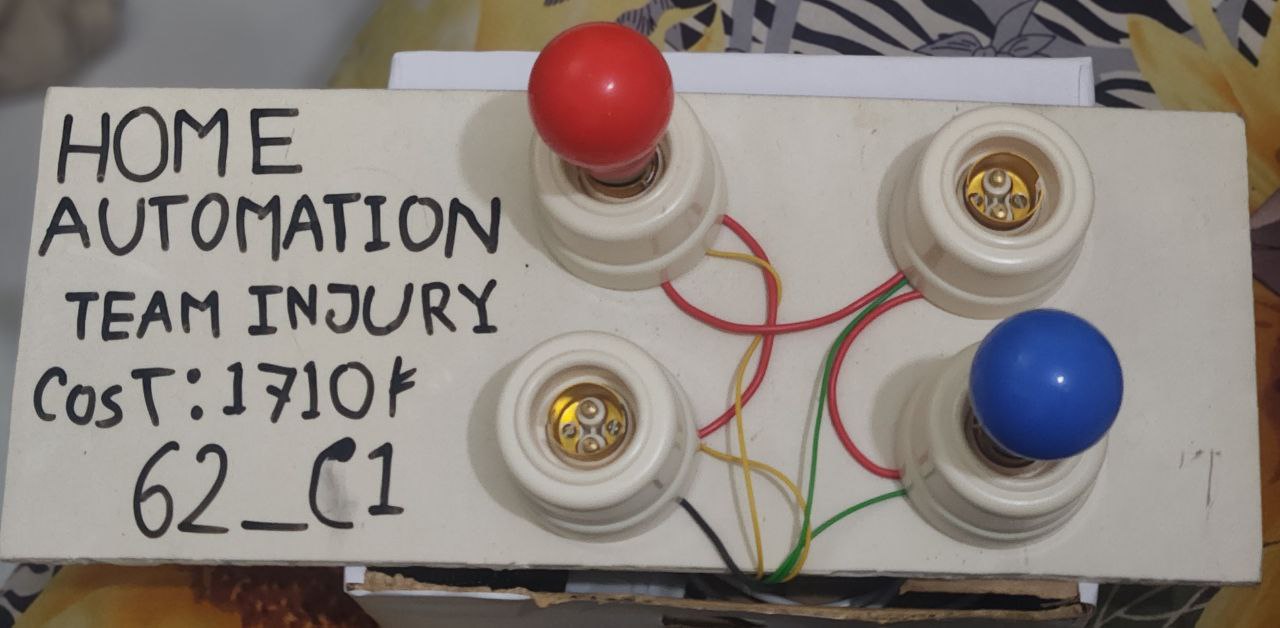 HOME
AUTOMATION
TEAM INJURY
COST: 1710৳
62_C1